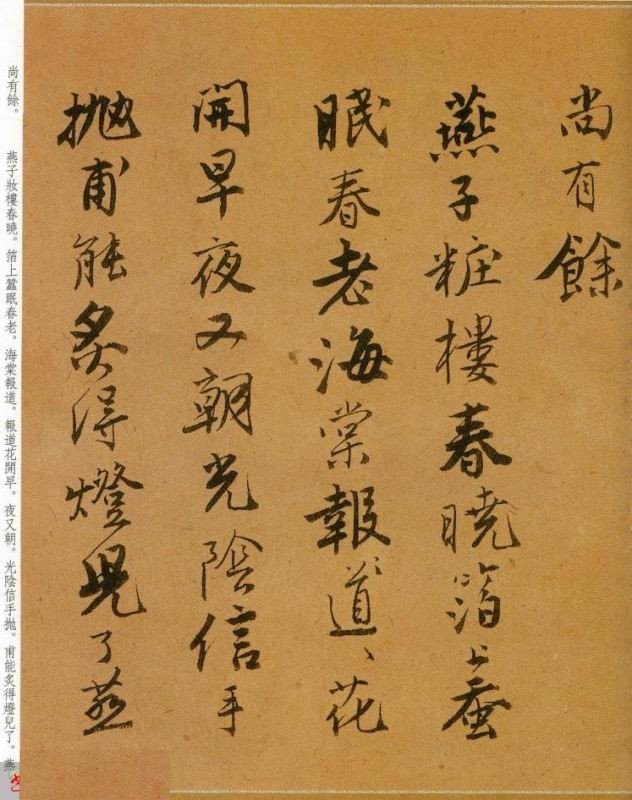 尚有餘
燕子粧樓春曉箔上蚕
眠春老海棠報道〻花
開早夜又朝光陰信手
拋甫能炙得燈兒了燕
尚有餘。　燕子妝樓春曉。箔上蠶眠春老。海棠報道。報道花開早。夜又朝。光陰信手拋。甫能炙得燈兒了。燕